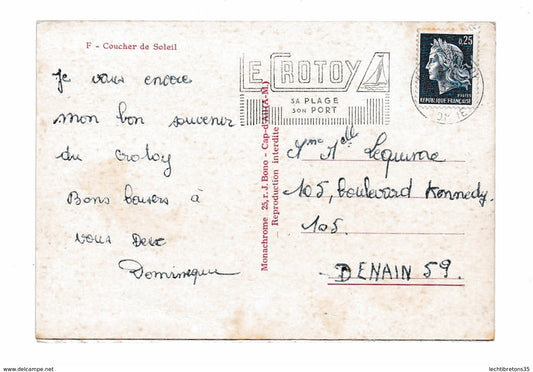 F - Coucher de Soleil
Je vous envoie
mon bon souvenir
du crotoy
Bons baisers à
vous Deux
Dominique
LE CROTOY
SA PLAGE
SON PORT
Monachrome - 25, r. J. Bono - Cap-d'Ail (A.-M.)
Reproduction interdite
0,25
POSTES
REPUBLIQUE FRANÇAISE
Mme Melle Lequime
105, boulevard Kennedy.
105.
DENAIN 59.
www.delcampe.net
lechtibretons35